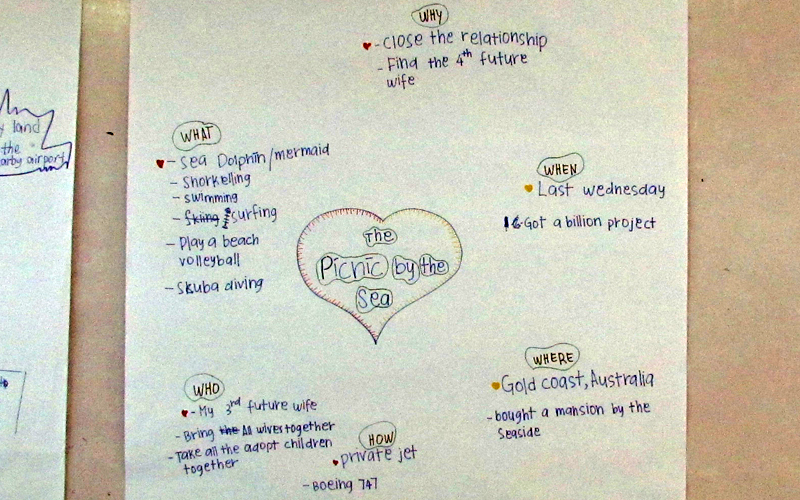 WHY
- Close the relationship
- Find the 4th future
wife
y land
the
arby airport
WHAT
- Sea Dolphin/mermaid
- Snorkelling
- swimming
- surfing
- Play a beach
volleyball
- Skuba diving
WHEN
Last wednesday
Got a billion project
The
Picnic by the
Sea
WHERE
Gold coast, Australia
- bought a mansion by the
Seaside
WHO
- My 3rd future wife
- Bring the All wives together
- Take all the adopt children
together
HOW
private jet
- Boeing 747